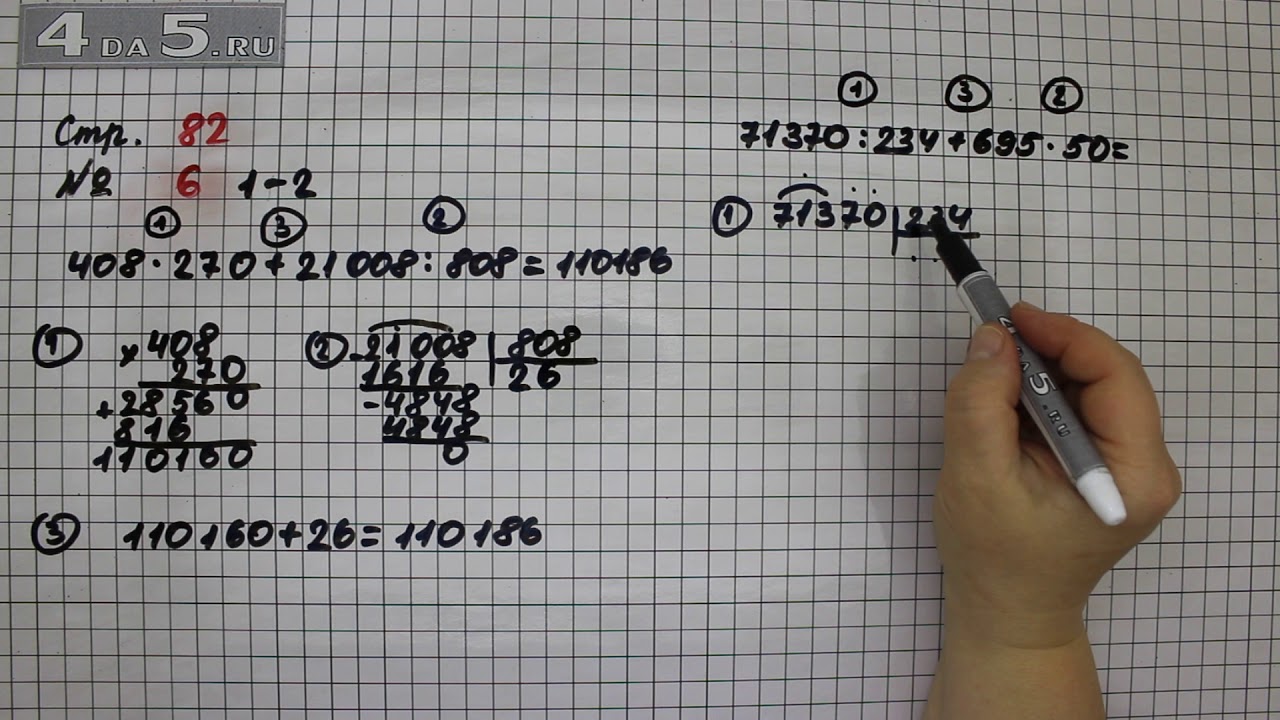 4DA5.RU
Стр. 82
№ 6 1-2
① ③ ②
408·270+21008:808=110186
① ×408
270
+28560
816
110160
② -21008 | 808
1616 | 26
-4848
4848
0
③ 110160+26=110186
① ③ ②
71370:234+695·50=
① 71370 | 234
4DA5.RU